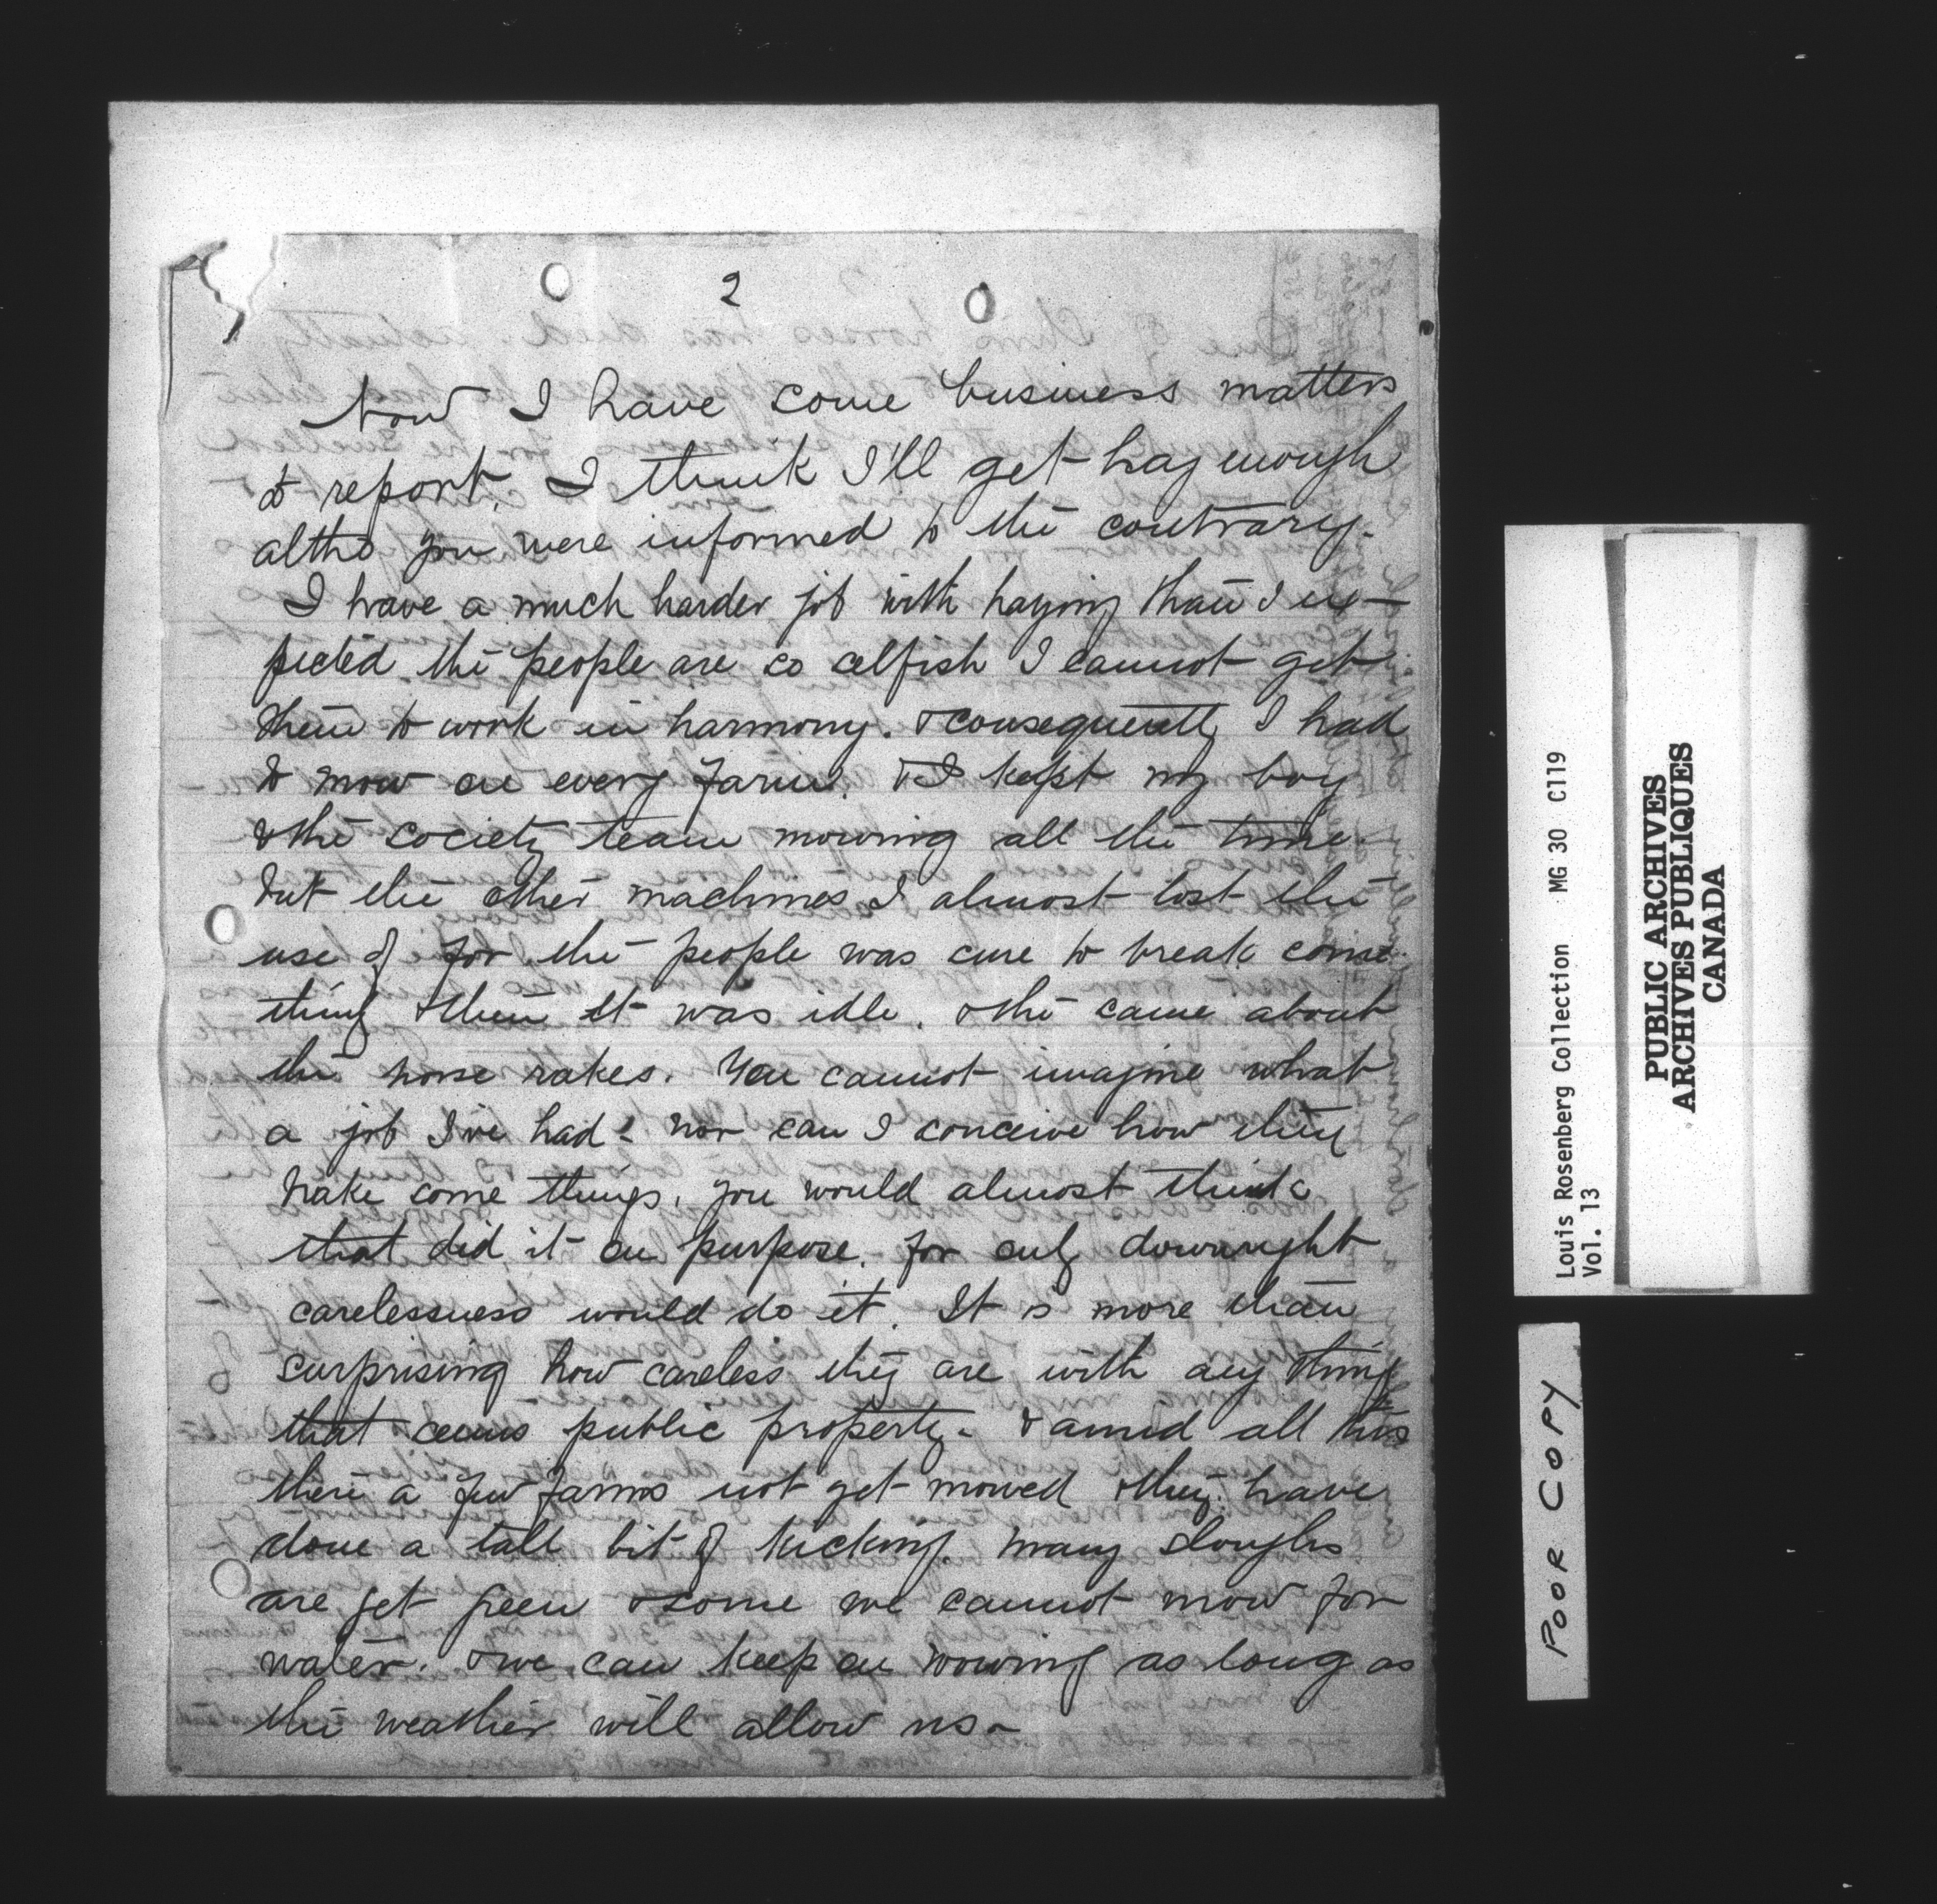 2
Now I have some business matters
to report. I think I'll get hay enough
altho you were informed to the contrary.
I have a much harder job with haying than I ex-
pected the people are so selfish I cannot get
them to work in harmony. & consequently I had
to mow on every farm. & I kept my boy
& the society team mowing all the time.
but the other machines I almost lost the
use of for the people was sure to break some
thing & then it was idle. & the same about
the horse rakes. You cannot imagine what
a job I've had - nor can I conceive how they
brake some things. you would almost think
that did it on purpose. for only downright
carelessness would do it. It is more than
surprising how careless they are with any thing
that seems public property - & amid all this
there a few farms not get mowed & they have
done a tall bit of kicking. many sloughs
are yet green & some we cannot mow for
water. & we can keep on mowing as long as
the weather will allow us -
Louis Rosenberg Collection MG 30 C119
Vol. 13
PUBLIC ARCHIVES
ARCHIVES PUBLIQUES
CANADA
POOR COPY